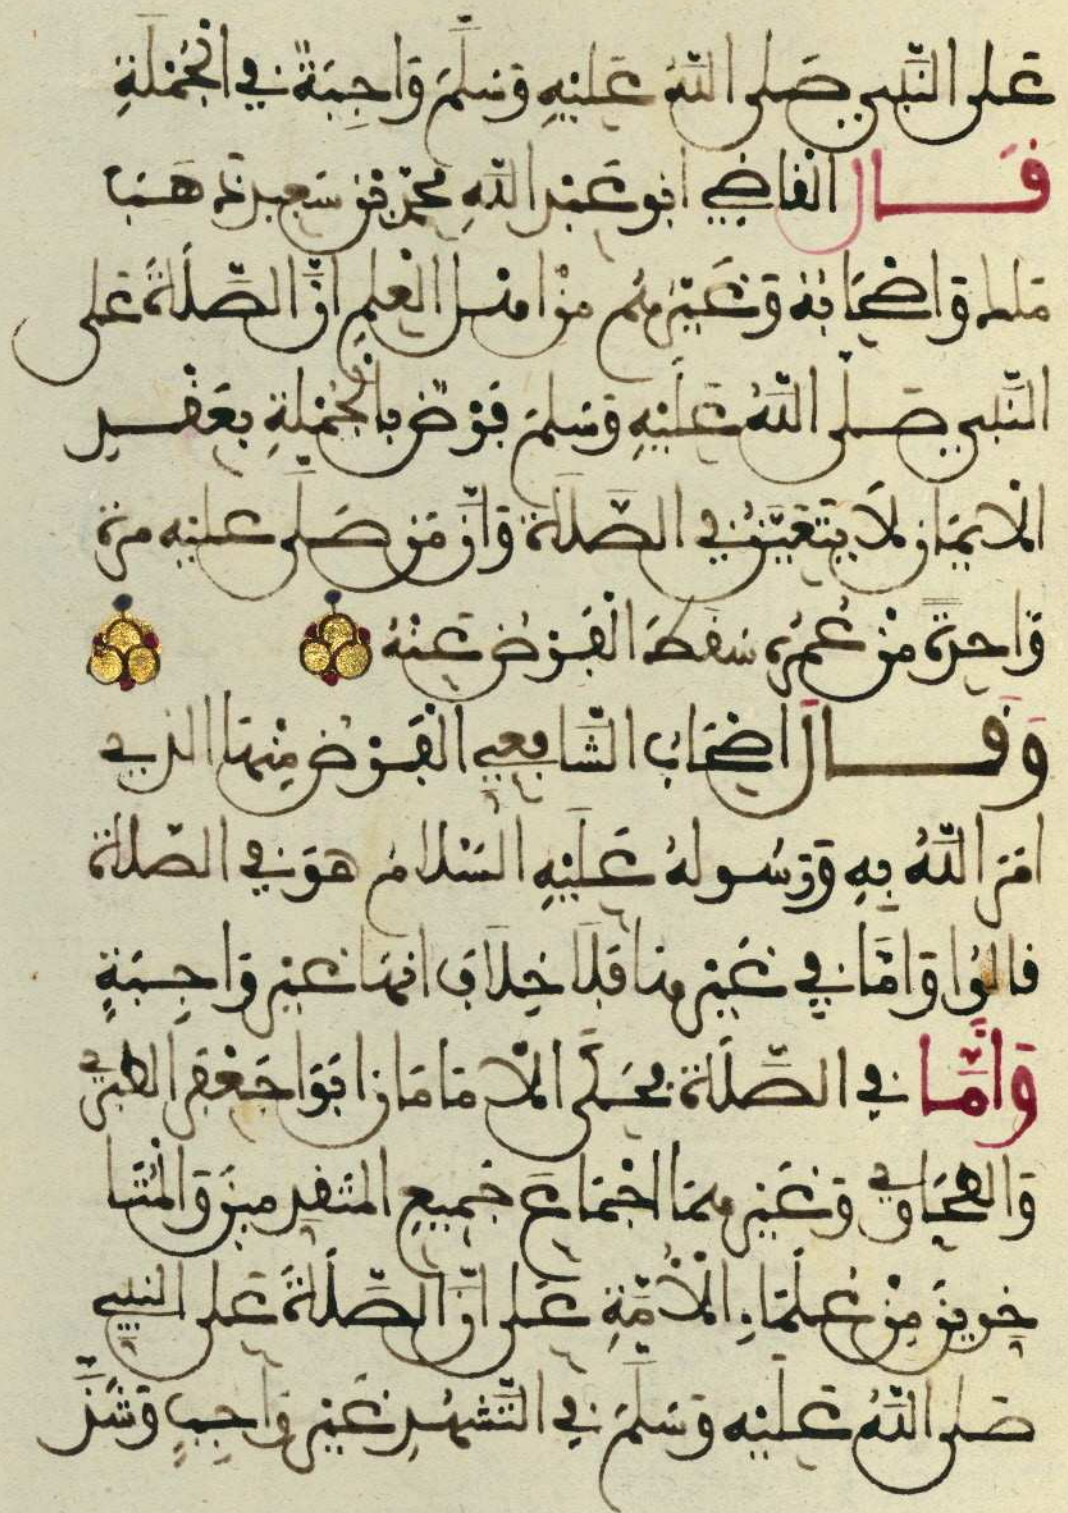 عَلى النَّبِىِّ صَلى اللَّهُ عَلَيْهِ وَسَلَّمَ وَاجِبَةٌ فِي الْجُمْلَةِ
قَال الْقَاضِي ابُو عَبْدِ اللَّهِ مُحَمَّدُ بْنُ سَعِيدٍ ذَهَبَ
مَالك وَاصْحَابُهُ وَغَيْرُهُم مِنْ اهْل الْعِلمِ انَّ الصَّلَاةَ عَلى
النَّبِي صَلى اللَّهُ عَلَيْهِ وَسَلمَ فَرْضٌ بِالْجُمْلَةِ بعَقْدِ
الْايمَانِ لَا يَتَعَيَّنُ فِي الصَّلَاة وَانَّ مَن صَلَّى عليْه مرة
وَاحِدَة مِنْ عُمُرِهِ سَقَطَ الْفَرْضُ عَنْهُ
وَقَالَ اصْحَابُ الشَّافِعِي الْفَرْضُ مِنْهَا الذِي
امَرَ اللَّهُ بِهِ وَرَسُولهُ عَلَيْهِ السَّلامُ هوَ فِي الصَّلاة
قَالُوا وَامَّا فِي غَيْرِهَا فَلَا خِلَافَ انهَا غَيْر وَاجِبَةٍ
وَامَّا فِي الصَّلَاة فحَكَى الْامَامَان ابَوا جَعْفَر الطبَرِي
وَالطحَاوِي وَغَيْرهمَا اجْمَاعَ جَمِيعِ المتَقدِّمِينَ وَالْمُتَا
خِرِينَ مِنْ عُلَمَاءِ الْاُمَّةِ عَلى انَّ الصَّلَاةَ عَلى النبِي
صَلى اللَّهُ عَليْه وَسَلمَ فِي التَّشَهُّدِ غَيْر وَاجِبٍ وَشَذَّ